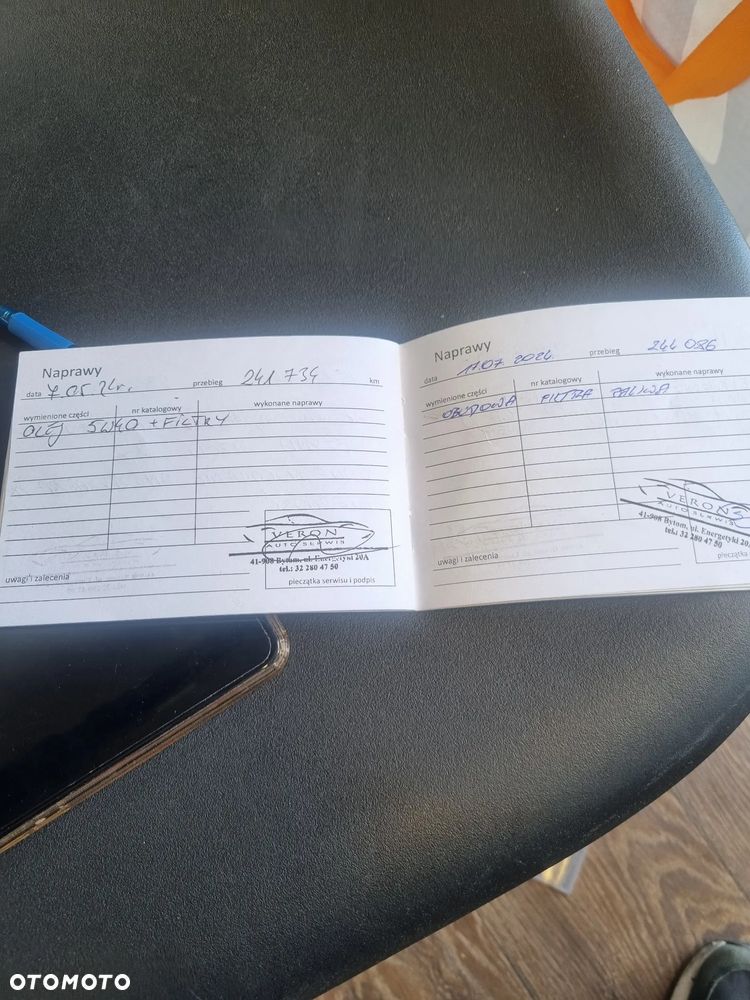 Naprawy
data 7.05.24r. przebieg 241 734 km
wymienione części nr katalogowy wykonane naprawy
OLEJ 5W40 + FILTRY
VERON
AUTO SERWIS
41-908 Bytom, ul. Energetyki 20A
tel.: 32 280 47 50
uwagi i zalecenia
pieczątka serwisu i podpis
Naprawy
data 11.07 2024 przebieg 244 086
wymienione części nr katalogowy wykonane naprawy
OBUDOWA FILTRA PALIWA
VERON
AUTO SERWIS
41-908 Bytom, ul. Energetyki 20A
tel.: 32 280 47 50
uwagi i zalecenia
pieczątka
OTOMOTO